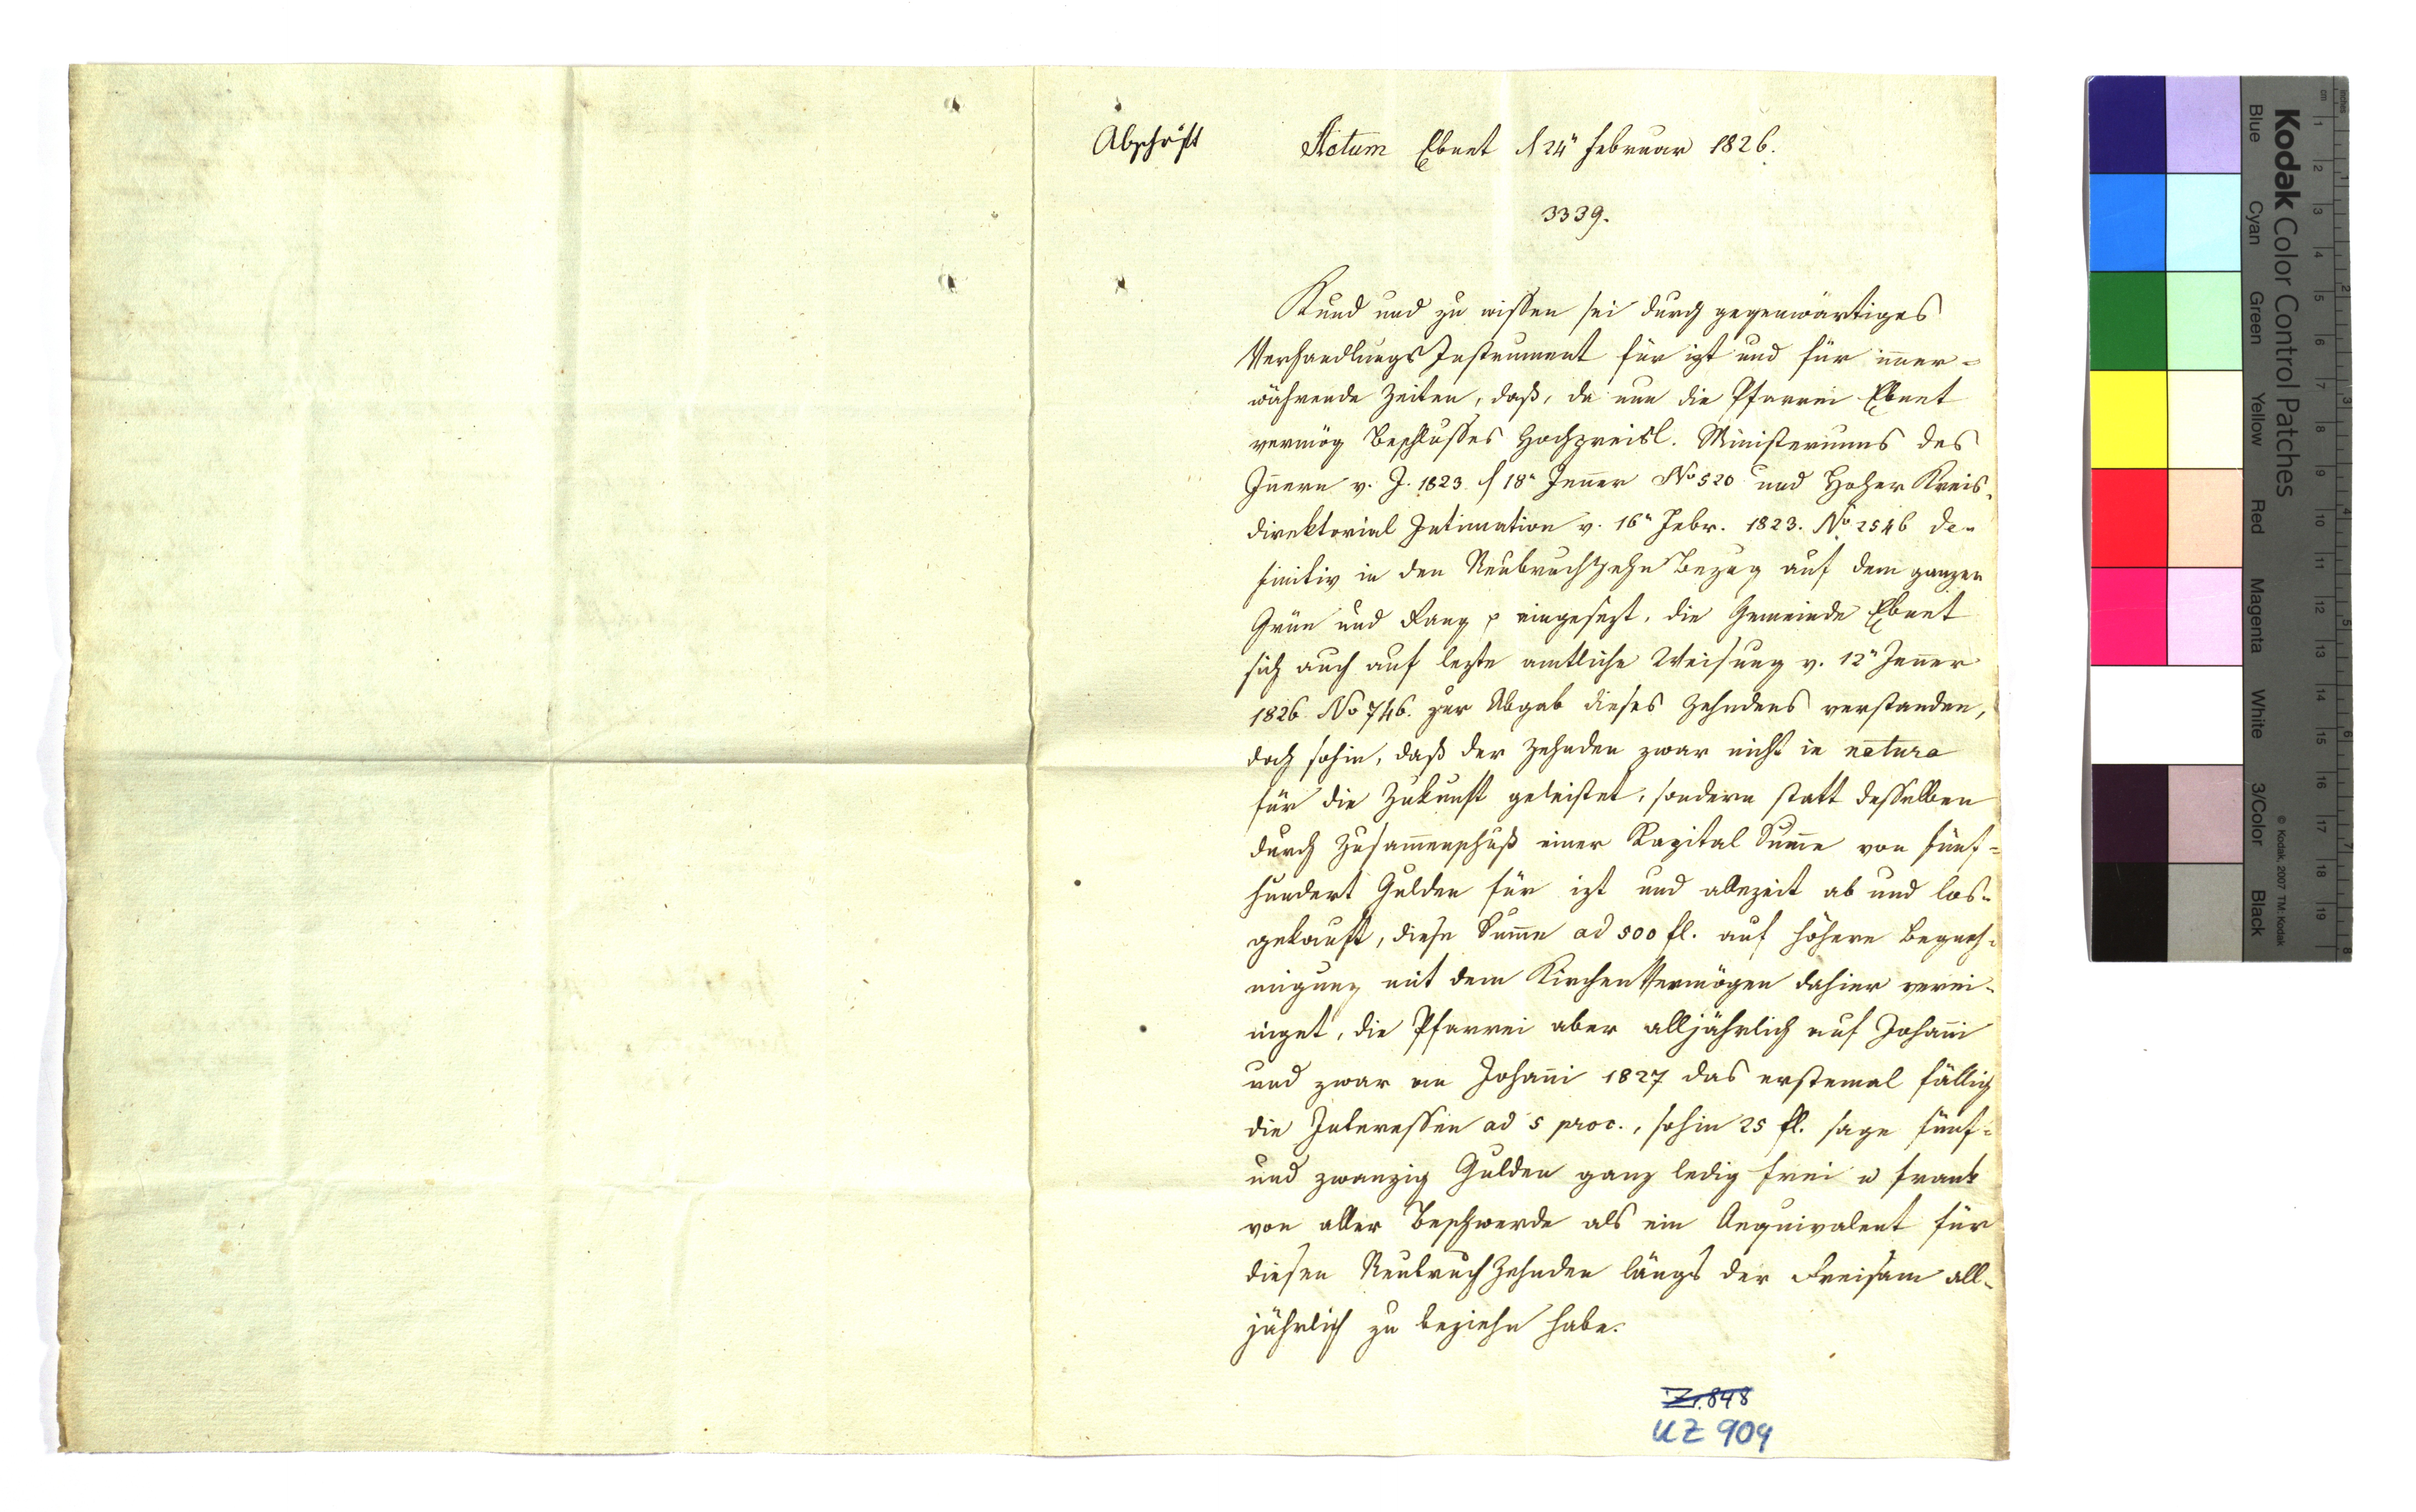 Abschrift
Actum Ebnet d 24n Februar 1826.
3339.
Kund und zu wissen sei durch gegenwärtiges
Verhandlungs Instrument für izt und für imer=
währende Zeiten, daß, da nun die Pfarrei Ebnet
vermög Beschlusses Hochpreisl. Ministeriums des
Inern v. J. 1823 d 18n Jener No 520 und Hoher Kreis-
direktorial Intimation v. 16n Febr. 1823. No 2546 de-
finitiv in den Neubruchzehn Bezug auf dem ganzen
Grün und eingesezt, die Gemeinde Ebnet
sich auch auf lezte amtliche Weisung v. 12n Jener
1826 No 746. zur Abgab dieses Zehndens verstanden,
doch sohin, daß der Zehnden zwar nicht in natura
für die Zukunft geleistet, sondern statt desselben
durch Zusamenschuß einer Kapital Sume von fünf=
hundert Gulden für izt und allezeit ab und los-
gekauft, diese Sume ad 500 fl. auf höhere Begneh-
migung mit dem Kirchen Vermögen dahier verei-
niget, die Pfarrei aber alljährlich auf Johani
und zwar an Johani 1827 das erstemal fällig
die Interessen ad 5 proc., sohin 25 fl. sage fünf=
und zwanzig Gulden ganz ledig frei u frank
von aller Beschwerde als ein Aequivalent für
diesen Neubruch Zehnden längs der Dreisam all-
jährlich zu beziehn habe.
Z. 848
UZ 909
Kodak Color Control Patches
Blue Cyan Green Yellow Red Magenta White 3/Color Black
© Kodak, 2007 TM: Kodak
cm 1 2 3 4 5 6 7 8 9 10 11 12 13 14 15 16 17 18 19
inches 1 2 3 4 5 6 7 8